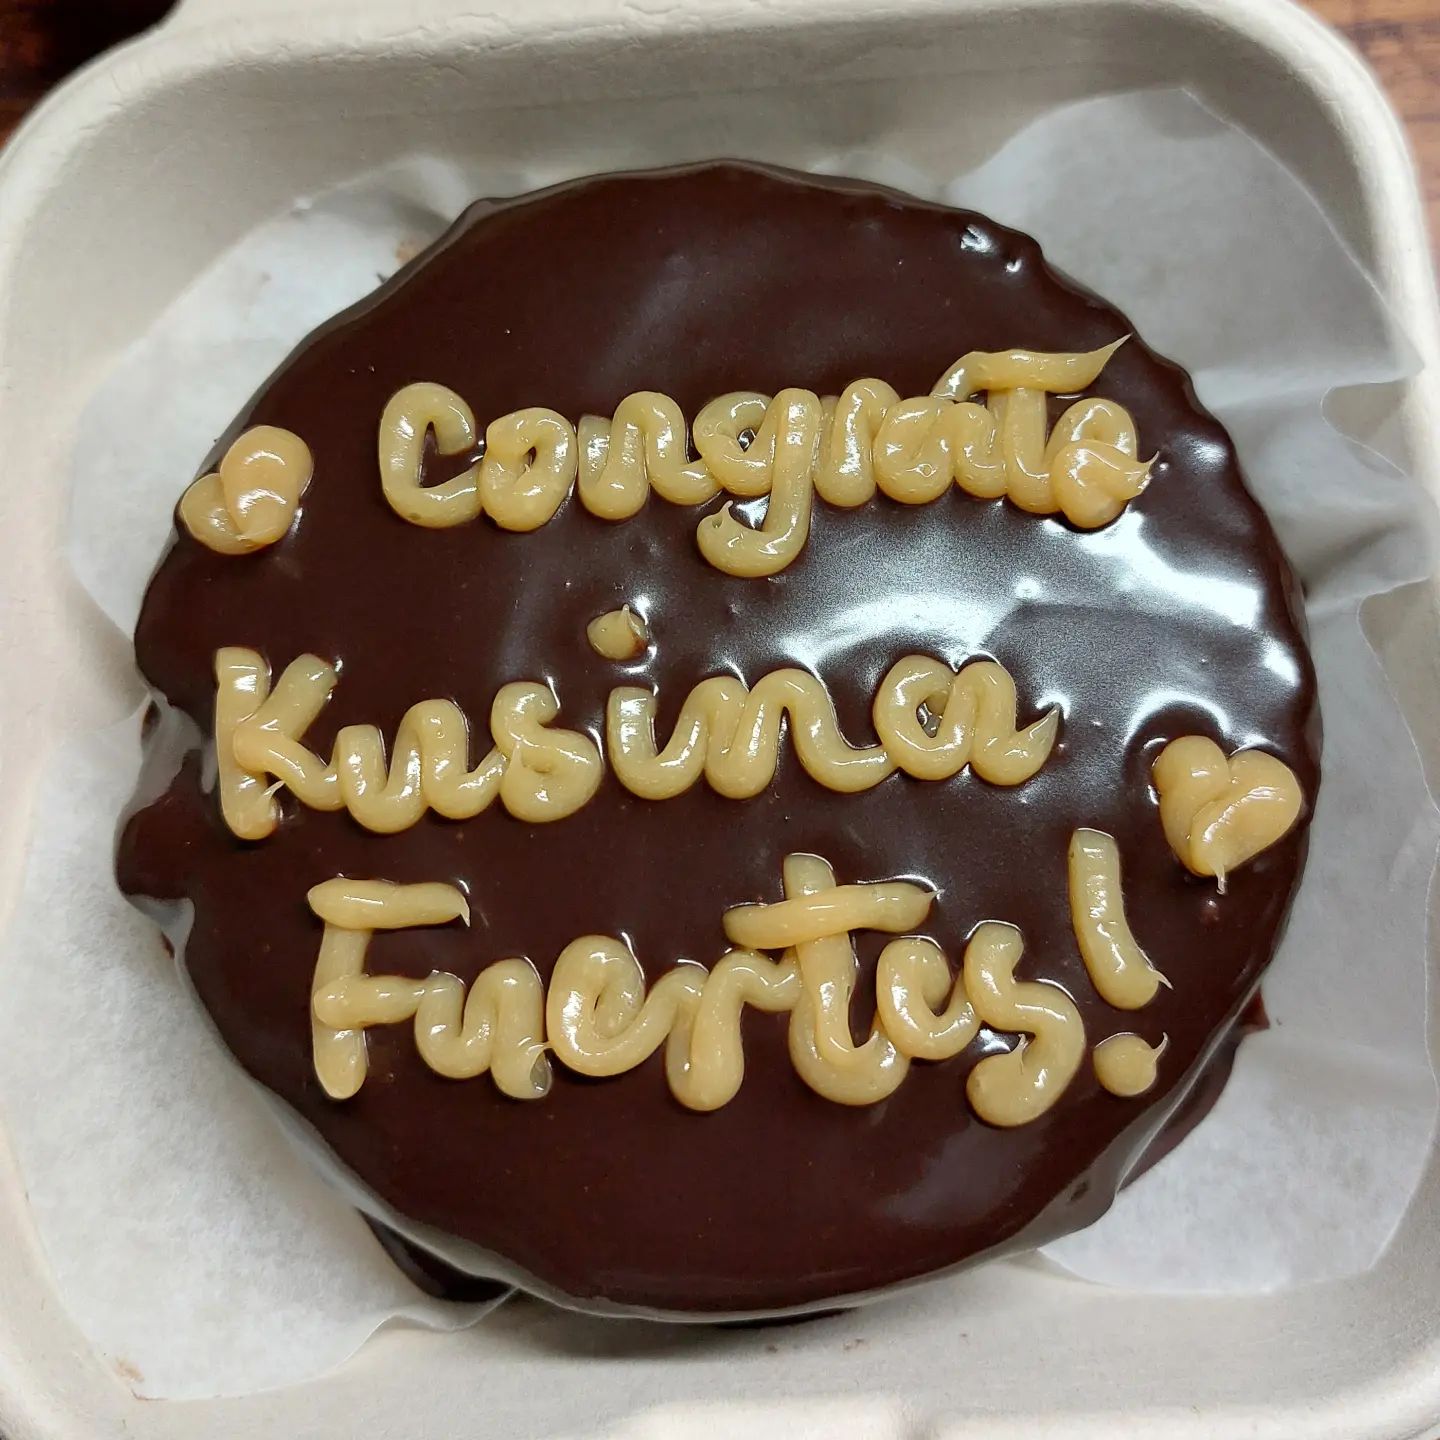 Congrats
Kusina
Fuertes!